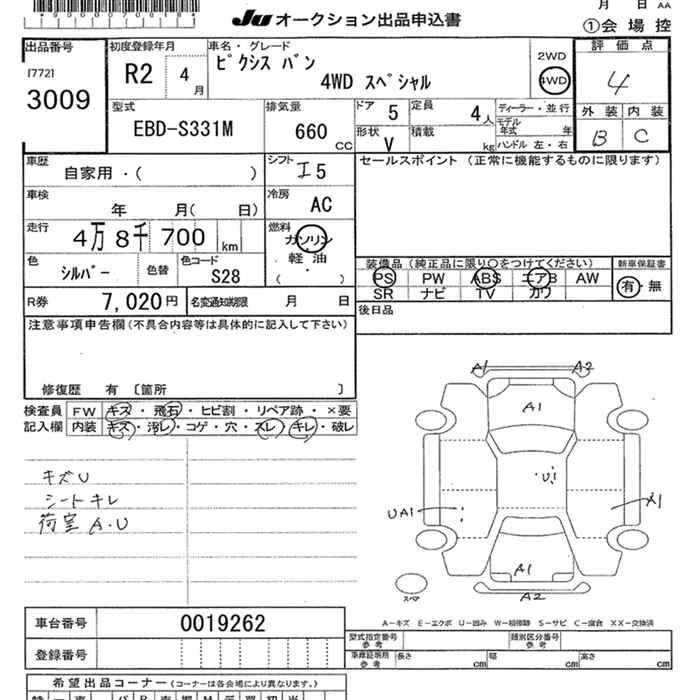 *9000070618*
JU オークション出品申込書
月 日 AA
①会場控
出品番号
[772]
3009
初度登録年月
R2 4月
車名・グレード
ピクシス バン
4WD スペシャル
2WD
4WD
評価点
4
型式
EBD-S331M
排気量
660 CC
ドア 5
定員 4人
形状 V
積載 kg
ディーラー・並行
モデル年式 年
ハンドル 左・右
外装 内装
B C
車歴
自家用・( )
シフト
I5
セールスポイント (正常に機能するものに限ります)
車検
年 月( 日)
冷房
AC
走行
4万8千700 km
燃料
ガソリン
軽油
( )
色
シルバー
色替
色コード
S28
装備品(純正品に限り○をつけてください)
新車保証書
PS PW ABS エアB AW
SR ナビ TV カワ
有・無
R券 7,020円
名変通知期限 月 日
後日品
注意事項申告欄(不具合内容等は具体的に記入して下さい)
修復歴 有 〔箇所 〕
検査員 FW キズ・飛石・ヒビ割・リペア跡・×要
記入欄 内装 キズ・汚レ・コゲ・穴・スレ・キレ・破レ
キズU
シートキレ
荷室 A・U
A1 A2
A1
U1
UA1
X1
A1
A2
スペア
車台番号 0019262
A－キズ E－エクボ U－凹み W－補修跡 S－サビ C－腐食 XX－交換済
登録番号
型式指定番号 参考
類別区分番号 参考
車庫証明用 参考
長さ cm
幅 cm
高さ cm
希望出品コーナー(コーナーは各会場により異なります。)